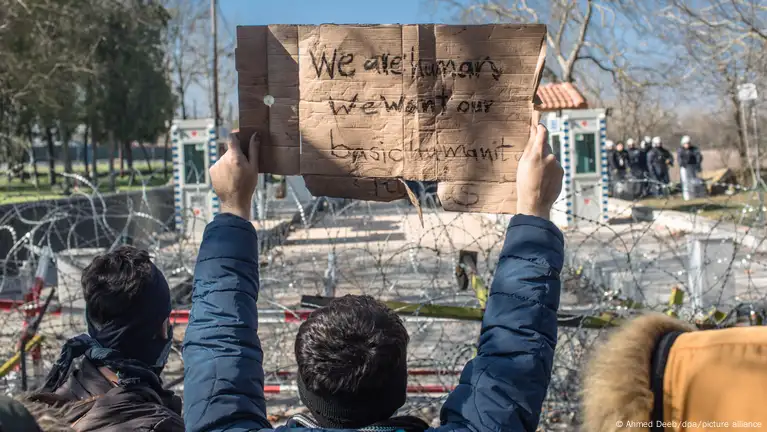 We are Human,
We want our
basic Humanit
© Ahmed Deeb/dpa/picture alliance